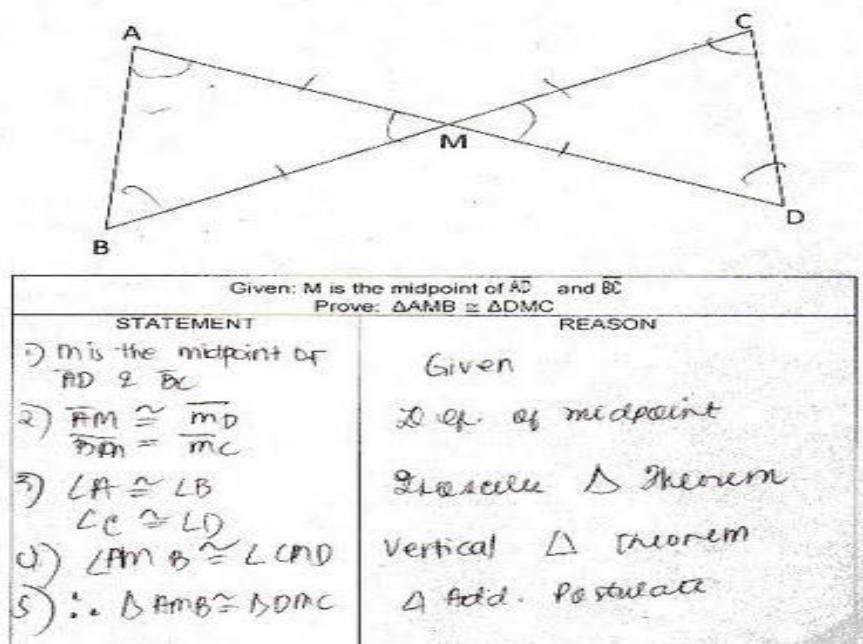 A
C
M
B
D
Given: M is the midpoint of AD and BC
Prove: ΔAMB ≅ ΔDMC
STATEMENT
REASON
1.) M is the midpoint of
AD & BC
Given
2) AM ≅ MD
BM = MC
Def. of midpoint
3) ∠A ≅ ∠B
∠C ≅ ∠D
Isosceles Δ Theorem
4) ∠AMB ≅ ∠CMD
Vertical Δ Theorem
5) ∴ ΔAMB ≅ ΔDMC
Δ Add. Postulate